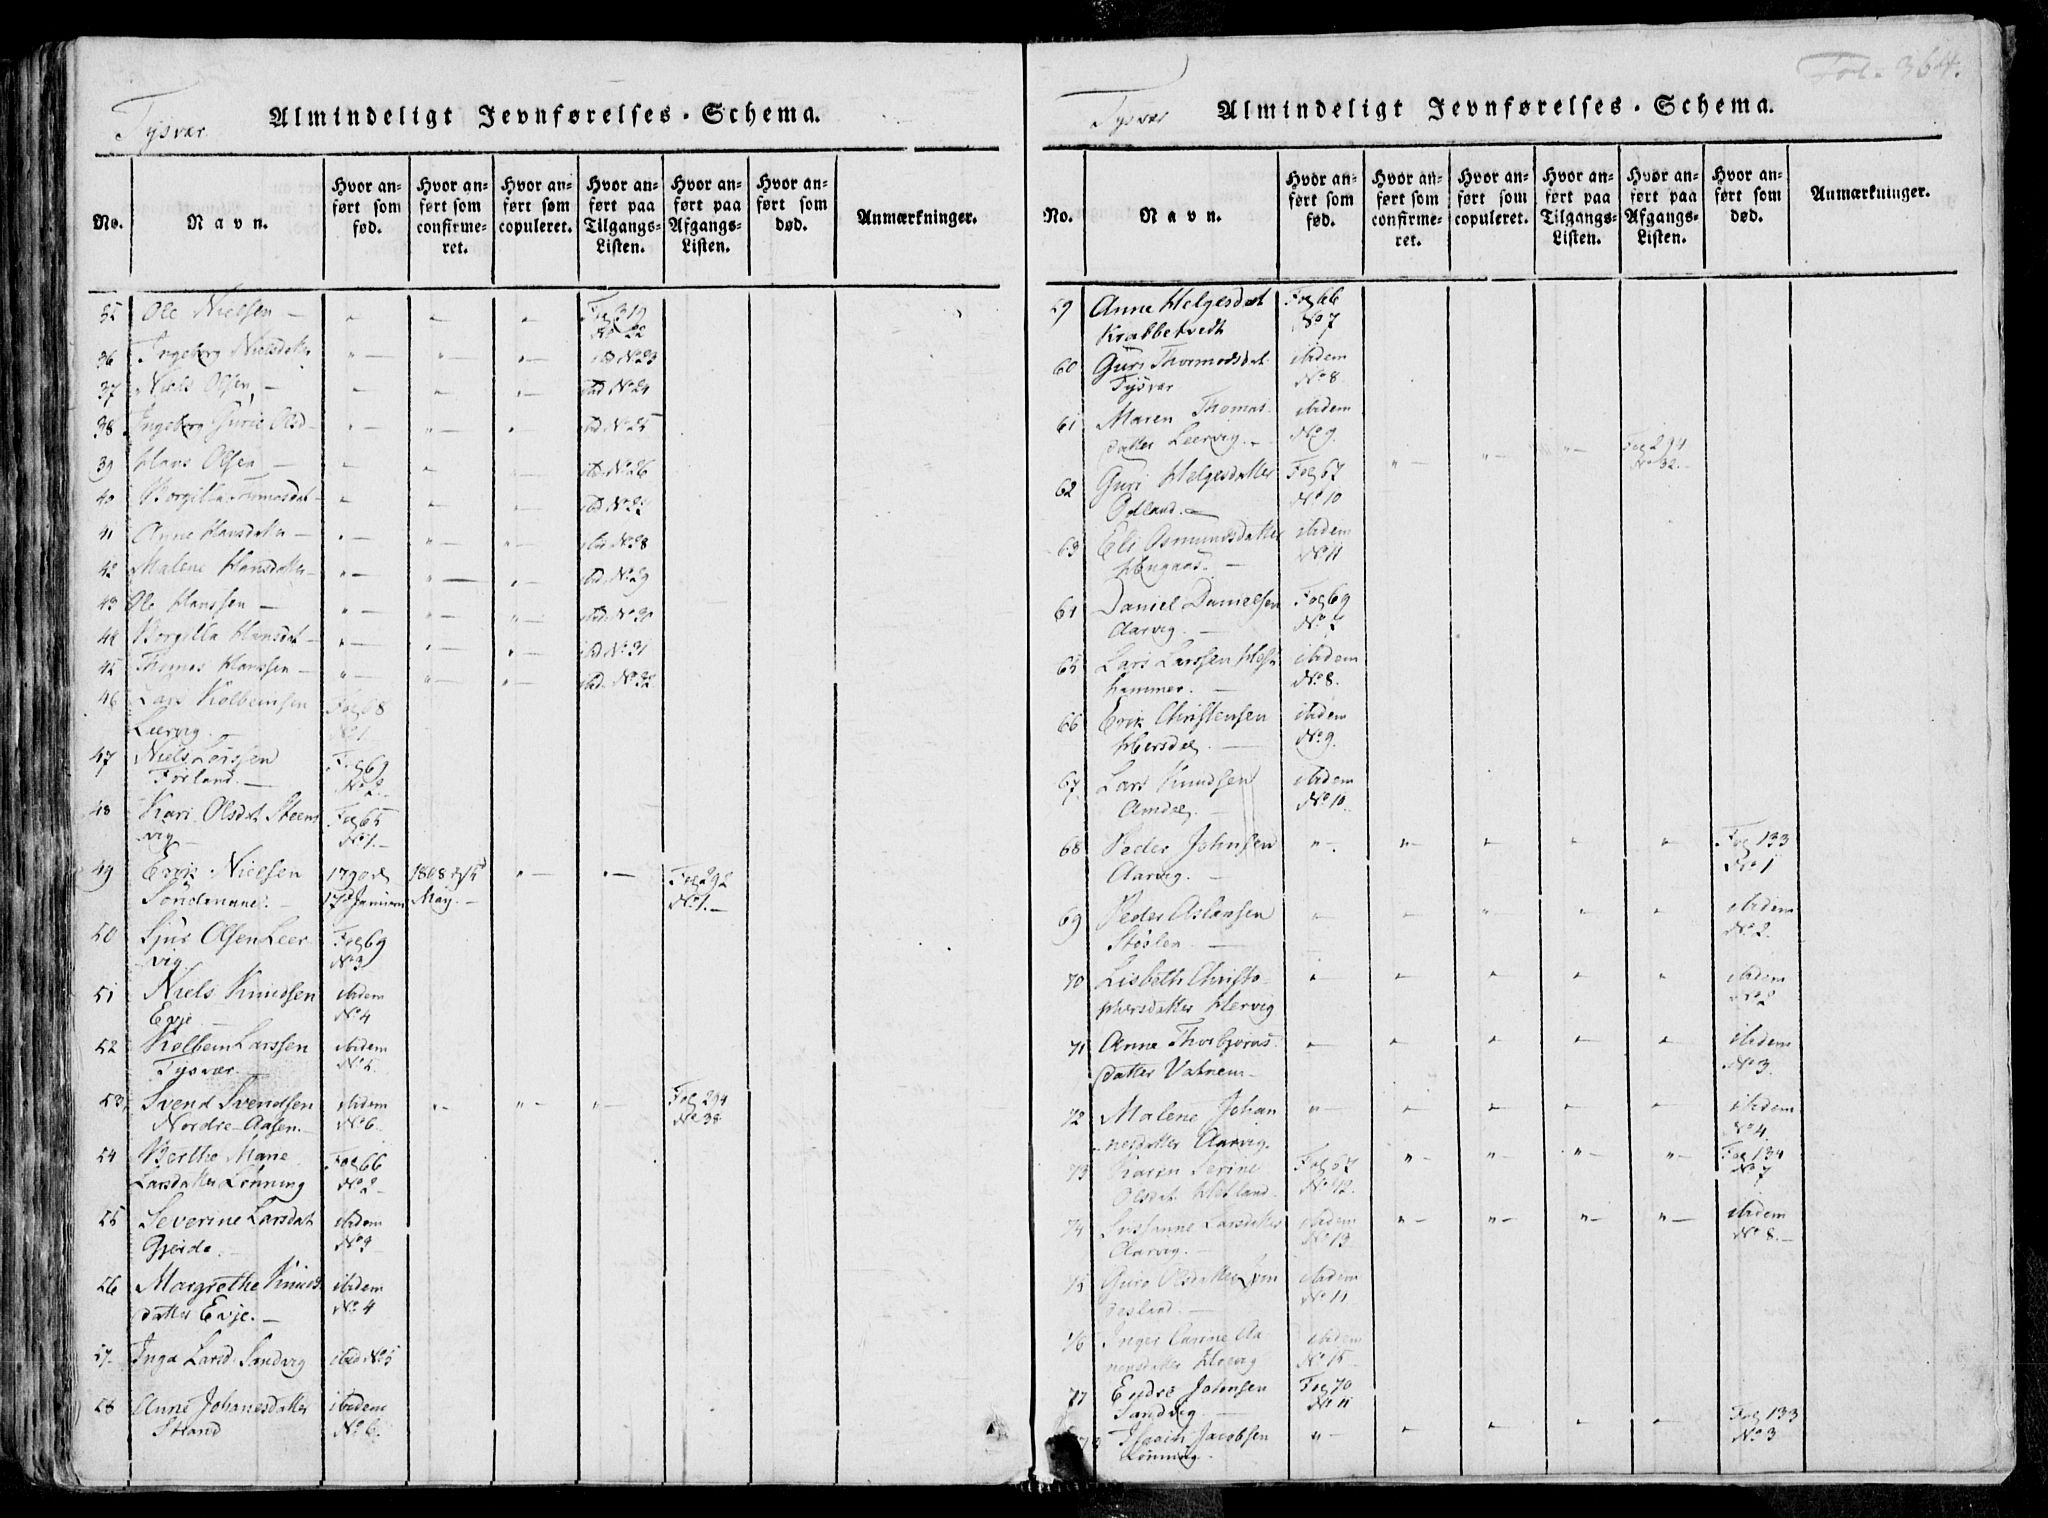 Fol. 364.
Tysvær
Almindeligt Jevnførelses-Schema.
No.
Navn.
Hvor anført som fød.
Hvor anført som confirmeret.
Hvor anført som copuleret.
Hvor anført paa Tilgangs-Listen.
Hvor anført paa Afgangs-Listen.
Hvor anført som død.
Anmærkninger.
35 Ole Nielsen — " — " — " — Fol 319
No 22
36 Ingeborg Nielsdatter " — " — " — ibd No 23
37 Niels Olsen — " — " — " — ibd No 24
38 Ingeborg Gurie Olsd — " — " — " — ibd No 25
39 Hans Olsen — " — " — " — ibd No 26
40 Borgilla Tomasdat — " — " — " — ibd No 27
41 Anne Hansdatter — " — " — " — ibd No 28
42 Malene Hansdatter — " — " — " — ibd No 29
43 Ole Hanssen — " — " — " — ibd No 30
44 Borgilla Hansdat — " — " — " — ibd No 31
45 Thomas Hanssen — " — " — " — ibd No 32
46 Lars Kolbeinsen Fol 68
Leervig. — No 1
47 Niels Larssen Fol 69
Førland. — No 2
48 Kari Olsdat Steens Fol 65
vig — No 1. —
49 Erik Nielsen 1790 d 1808 d 15d " — " — Fol 292
17d Januari May. — No 1. —
50 Sjur Olsen Leer Fol 69
vig No 3
51 Niels Knudsen ibidem
Evje — No 4
52 Kolbein Larssen ibidem
Tysvær. — No 5
53 Svend Svendsen ibidem " — " — " — Fol 294
Nordre-Aasen. — No 6 No 38
54 Berthe Marie Fol 66
Larsdatter Lønning No 2
55 Severine Larsdat ibidem
Gjerde. — No 3
56 Margrethe Knuds ibidem
datter Evje. — No 4
57. Inga Larsd Sandvig ibid No 5
58 Anne Johanesdatter ibidem
Strand No 6
Tysvær
Almindeligt Jevnførelses-Schema.
No.
Navn.
Hvor anført som fød.
Hvor anført som confirmeret.
Hvor anført som copuleret.
Hvor anført paa Tilgangs-Listen.
Hvor anført paa Afgangs-Listen.
Hvor anført som død.
Anmærkninger.
59 Anne Helgesdat Fol 66
Krabbetvedt No 7
60 Guri Thormodsdat ibidem
Tysvær No 8
61 Maren Thomas ibidem
datter Leervig. — No 9. " — " — " — Fol 294
No 32. —
62 Guri Helgesdatter Fol 67
No 10
63 Eli Asmundsdatter ibidem
No 11
64 Daniel Danielsen Fol 69
Aarvig. — No 7
65 Lars Larssen Hest ibidem
hammer. — No 8.
66 Erik Christensen ibidem
Hersdal. — No 9.
67 Lars Knudsen ibidem
Amdal. — No 10
68 Peder Johnsen " — " — " — " — " — Fol 133
Aarvig. — No 1
69 Peder Aslaksen " — " — " — " — " — ibidem
Støelen. — No 2.
70 Lisbeth Christo- " — " — " — " — " — ibidem
phersdatter Hervig No 2
71 Anne Thorbjørns " — " — " — " — " — ibidem
datter Vatnem — No 3.
72 Malene Johan " — " — " — " — " — ibidem
nesdatter Aarvig. No 4
73 Karen Serine Fol 67 " — " — " — " — Fol 134
Olsdat Hetland. No 12. No 7
74 Susanne Larsdatter ibidem " — " — " — " — ibidem
Aarvig. — No 13 No 8. —
75 Guro Olsdatter ibidem
No 11
76 Inger Carine Aa ibidem
nensdatter No 15
77 Endre Johnsen Fol 70
Sandvig. — No 11
Jacobsen " — " — " — " — " — Fol 133
Lønning. No 3